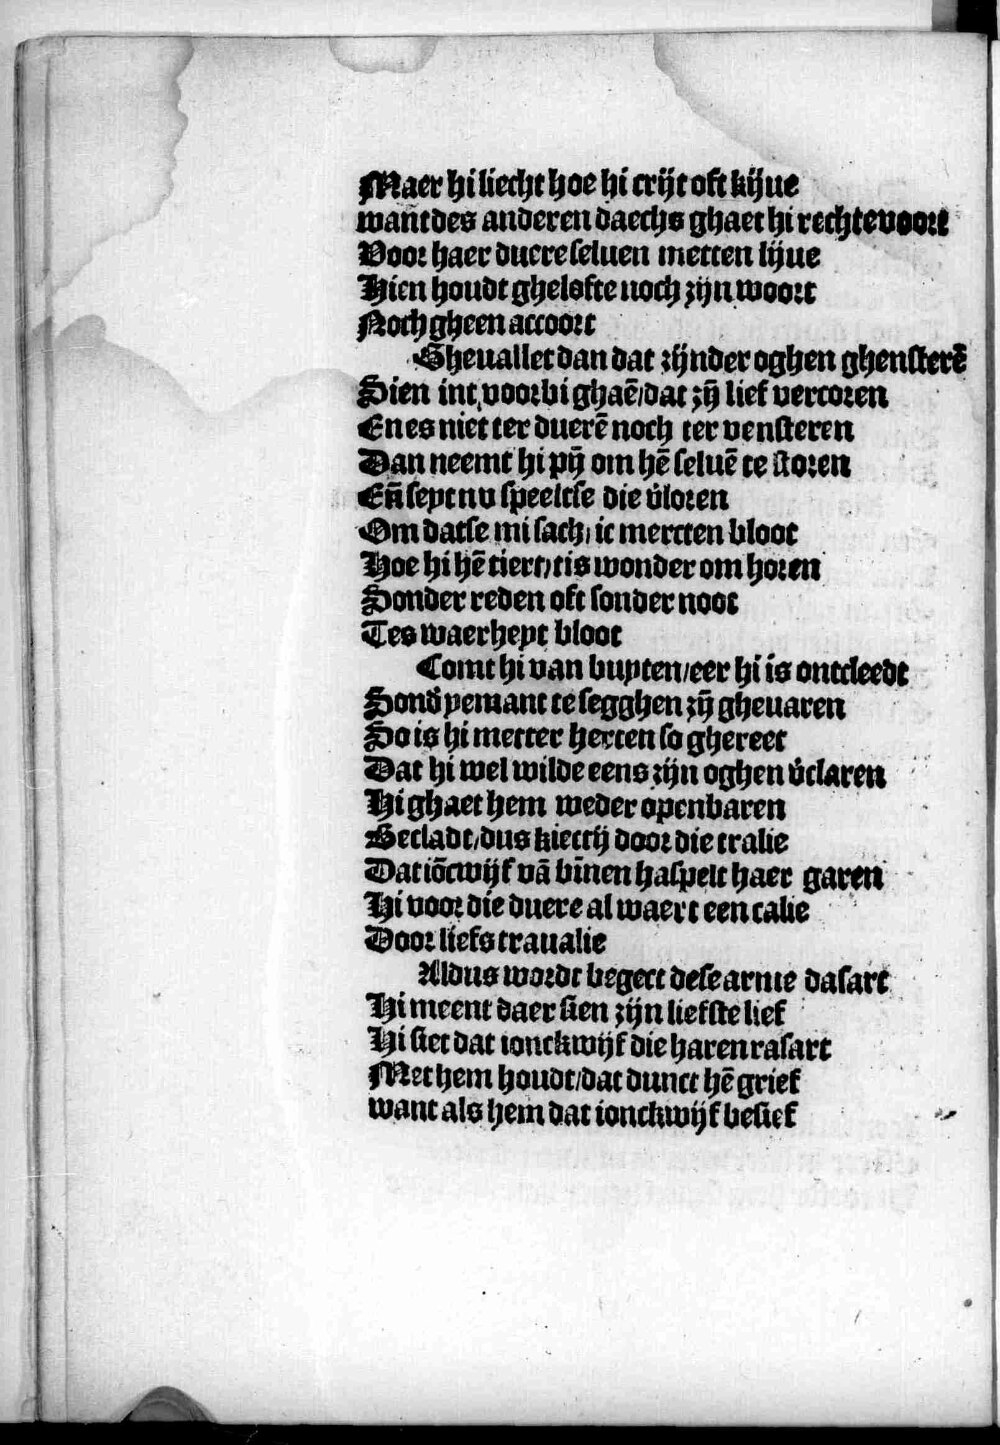 Maer hi liecht hoe hi crijt oft kijue
want des anderen daechs ghaet hi rechtevoort
Voor haer duere seluen metten lijue
Hien houdt ghelofte noch zijn woort
Noch gheen accoort
Gheuallet dan dat zijnder oghen ghensterē
Sien int voorbi ghaē/dat zȳ lief vercoren
En es niet ter duerē noch ter vensteren
Dan neemt hi pȳ om hē seluē te storen
Eñ seyt nu speeltse die v̄loren
Om datse mi sach/ ic mercten bloot
Hoe hi hē tiert/tis wonder om horen
Sonder reden oft sonder noot
Tes waerheyt bloot
Comt hi van buyten/eer hi is ontcleedt
Sond̄ yemant te segghen zȳ gheuaren
So is hi metter herten so ghereet
Dat hi wel wilde eens zijn oghen v̄claren
Hi ghaet hem weder openbaren
Gecladt/dus kiectij door die tralie
Dat iōcwijf vā bīnen haspelt haer garen
Hi voor die duere al waert een calie
Door liefs traualie
Aldus wordt begect dese arme dasart
Hi meent daer sien zijn liefste lief
Hi siet dat ionckwijf die haren rasart
Met hem houdt/dat dunct hē grief
want als hem dat ionckwijf besief